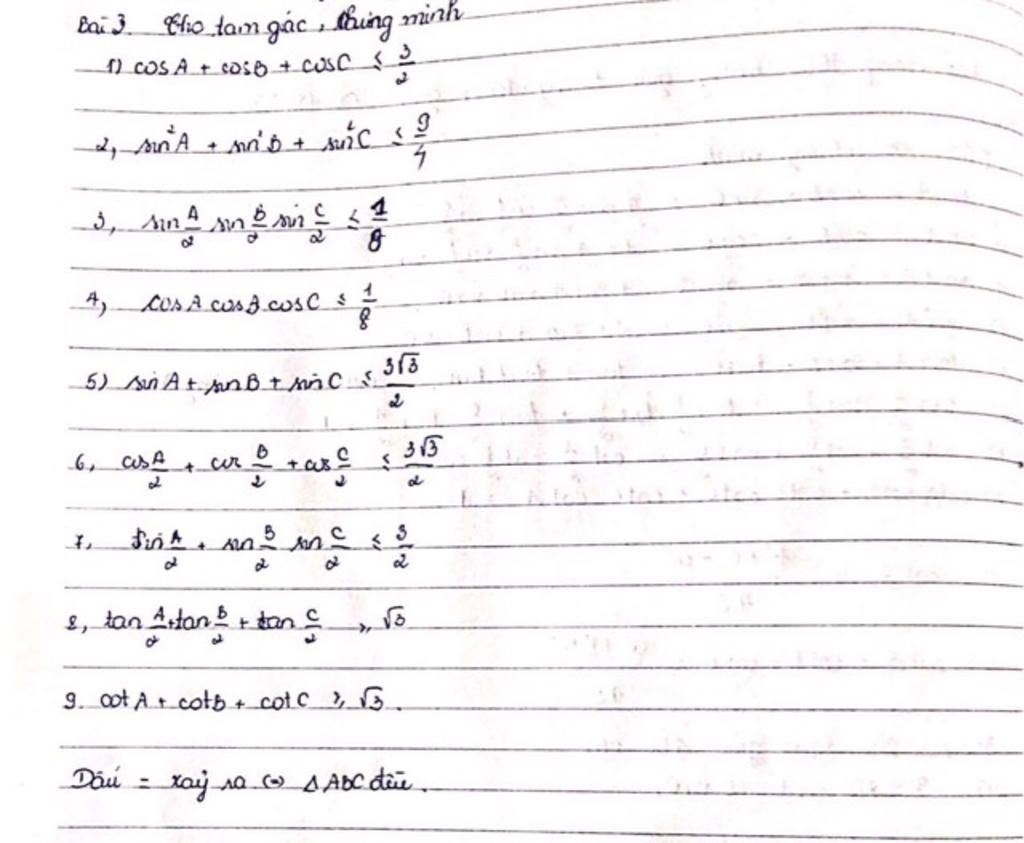 Bài 3. Cho tam giác, chứng minh
1) cosA + cosB + cosC ≤ 3/2
2, sin²A + sin²B + sin²C ≤ 9/4
3, sin A/2 sin B/2 sin C/2 ≤ 1/8
4, cosA cosB cosC ≤ 1/8
5) sinA + sinB + sinC ≤ 3√3/2
6, cos A/2 + cos B/2 + cos C/2 ≤ 3√3/2
7, sin A/2 + sin B/2 sin C/2 ≤ 3/2
8, tan A/2 + tan B/2 + tan C/2 ≥ √3
9. cotA + cotB + cotC ≥ √3.
Dấu = xảy ra ⇔ ΔABC đều.